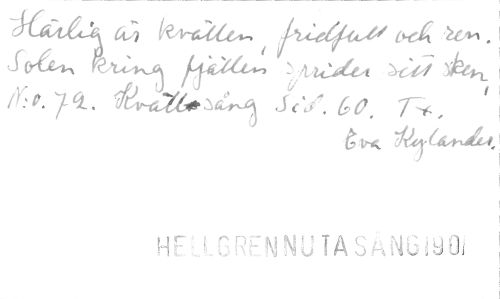 Härlig är kvällen, fridfull och ren.
Solen kring fjällen sprider sitt sken,
N:o. 72. Kvällssång Sid. 60. Tx.
Eva Kylander.
HELLGREN NUTA SÅNG 1901